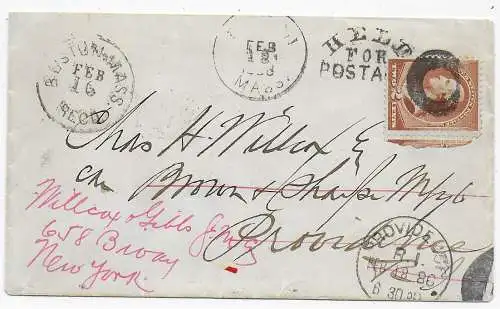 BOSTON MASS.
FEB
16
REC'D
FEB
18
MASS.
HELD
FOR
POSTA
Chas H. Willcox
Brown & Sharpe Mfg
Providence
Willcox & Gibbs
658 Broay
New York.
PROVIDENCE
R.I.
86
6 30